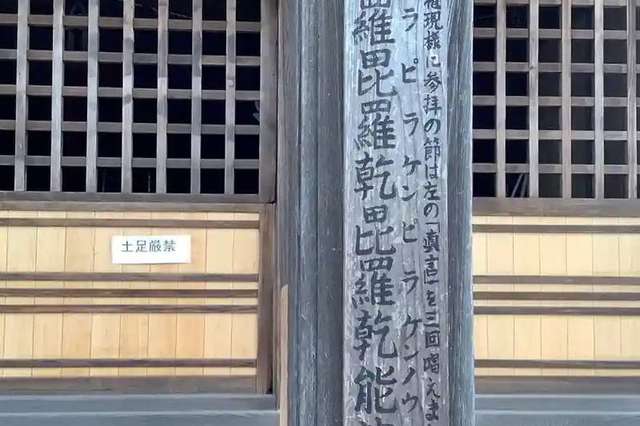 権現様に参拝の節は左の「真言」を三回唱えま
ラピラケンピラケンノウ
羅毘羅乾毘羅乾能
土足厳禁